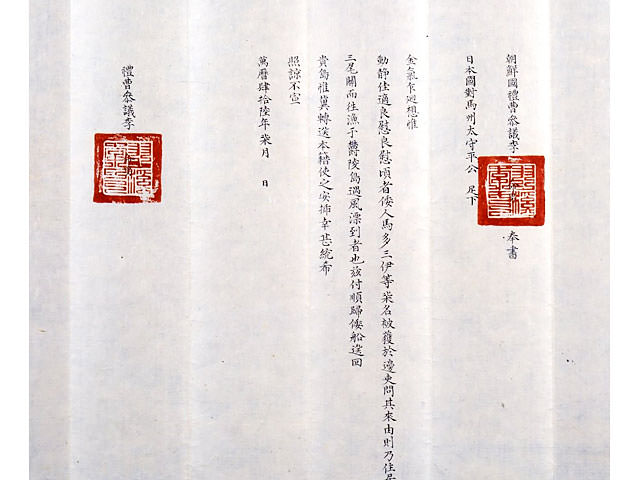 朝鮮國禮曹參議李 奉書
日本國對馬州太守平公 足下
金氣乍廻想惟
動靜佳適良慰良慰頃者倭人馬多三伊等柒名被獲於邊吏問其來由則乃住居
三尾關而往漁于欝陵島遇風漂到者也玆付順歸倭船送回
貴島惟冀轉送本籍使之安揷幸甚統希
照諒不宣
萬曆肆拾陸年柒月 日
禮曹參議李